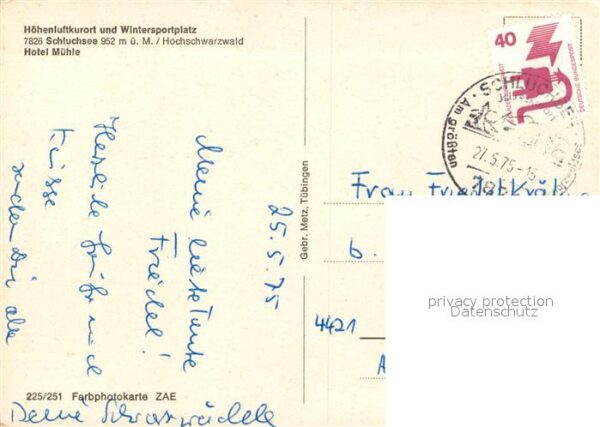 Höhenluftkurort und Wintersportplatz
7826 Schluchsee 952 m ü. M. / Hochschwarzwald
Hotel Mühle
25.5.75
Meine liebe Tante
Friedel!
Herzliche Grüße und
Küsse
senden Dir alle
Deine Schwarzwäldele
225/251 Farbphotokarte ZAE
Gebr. Metz, Tübingen
40
DEUTSCHE BUNDESPOST
SCHLUCHSEE
Am größten
27.5.75-16
Frau
b.
4421
privacy protection
Datenschutz